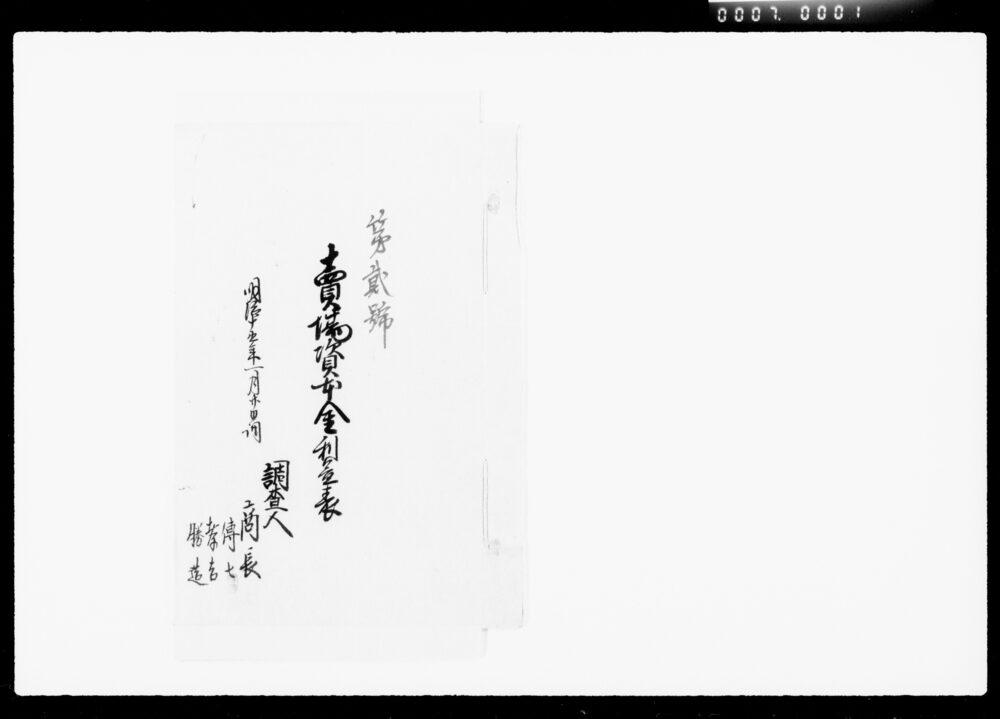 0007. 0001
第貳號
賣場資本金利益表
明治十五年一月廿四日調
調査人
工商長
傳七
孝吉
勝造